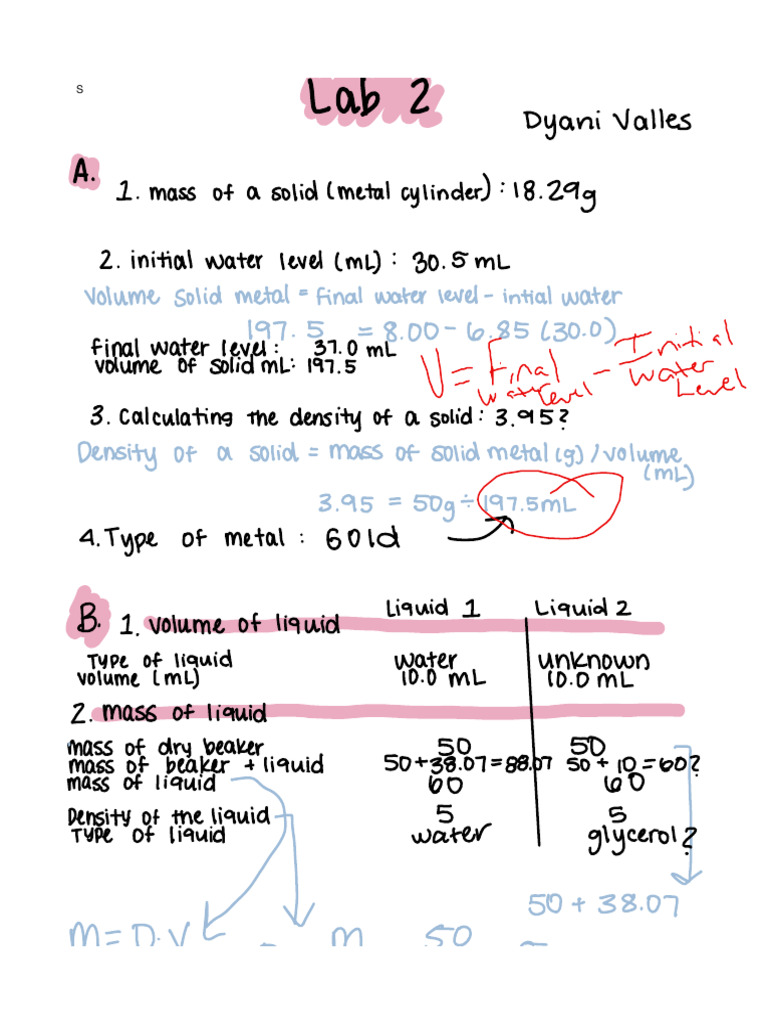 s
Lab 2
Dyani Valles
A.
1. mass of a solid (metal cylinder) : 18.29g
2. initial water level (mL) : 30.5 mL
Volume solid metal = final water level - intial water
197.5 = 8.00 - 6.85 (30.0)
final water level : 37.0 mL
volume of solid mL: 197.5
V = Final water level - Initial Water Level
3. Calculating the density of a solid : 3.95?
Density of a solid = mass of solid metal (g) / volume (mL)
3.95 = 50g ÷ 197.5mL
4. Type of metal : Gold
B. 1. volume of liquid Liquid 1 Liquid 2
Type of liquid water unknown
volume (mL) 10.0 mL 10.0 mL
2. mass of liquid
mass of dry beaker 50 50
mass of beaker + liquid 50+38.07=88.07 50+10=60?
mass of liquid 60 60
Density of the liquid 5 5
Type of liquid water glycerol?
50 + 38.07
M = D.V M 50